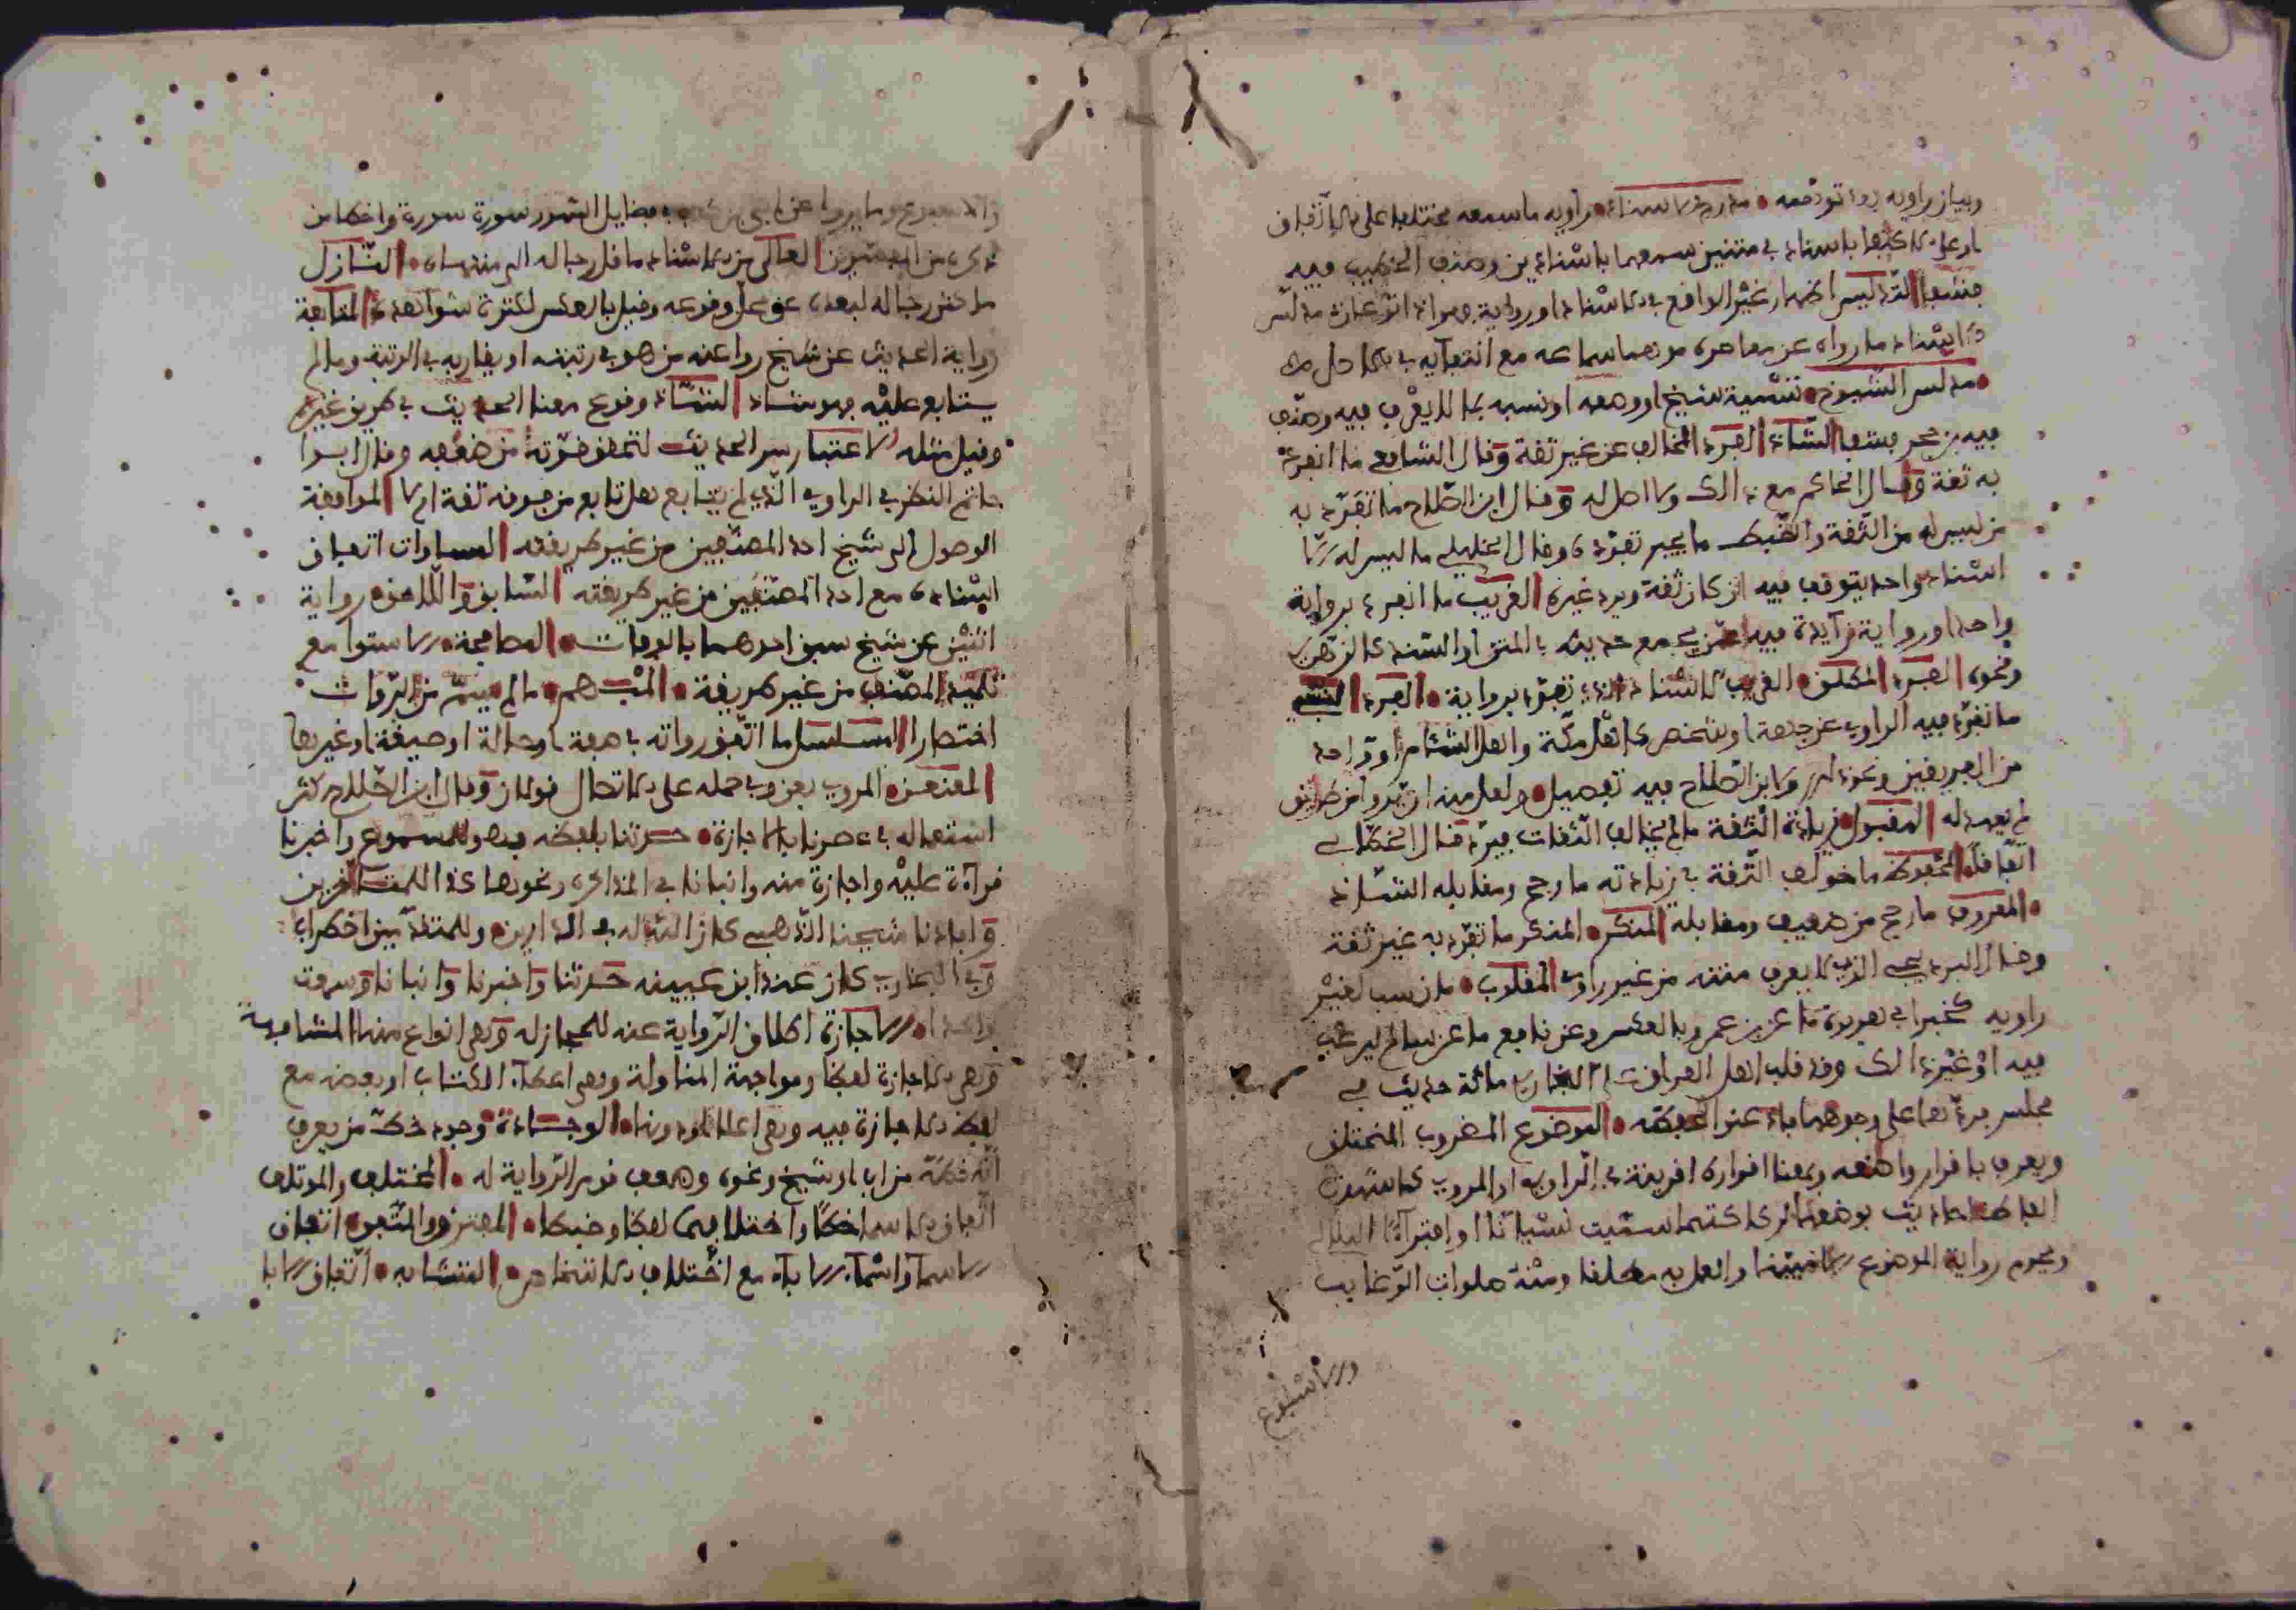 وبيان راويه مدرج الاسناد راويه ما سمعه مختلفا على الاتفاق
او على باسناد في متنين سمعهما باسنادين وصنف الخطيب فيه
التدليس اظهار غير الواقع في الاسناد او رواية وهو انواع مدلس
الاسناد ما رواه عن معاصره موهما سماعه مع انتفايه في الاصل
مدلس الشيوخ تسمية شيخ او وصفه او نسبه بما لا يعرف فيه وصنف
فيه بن حجر الشاذ الفرد المخالف عن غير ثقة وقال الشافعي ما انفرد
به ثقة وقال الحاكم مع ذالك ولا اصل له وقال ابن الصلاح ما تفرد به
من ليس له من الثقة والضبط ما يجبر تفرده وقال الخليلي ما ليس له الا
اسناد واحد يتوقف فيه ان كان ثقة ويرد غيره الغريب ما انفرد برواية
واحد او رواية زايدة فيه عمن يجمع حديثه في المتن او السند كالزهري
ونحوه الفرد المطلق الغريب الاسناد الذي تفرد برواية الفرد النسبي
ما تفرد فيه الراوي عن جهة او شخص كاهل مكة واهل الشام او واحد
من الفريقين ونحو ولابن الصلاح فيه تفصيل ولعل منه ان يروا من طريق
لم يعهد له المقبول زيادة الثقة ما لم يخالف الثقات فيرد قال الخطابي
اتفاقا المحفوظ ما خولف الثقة في زيادته ما رجح ومقابله الشاذ
المعروف ما رجح من ضعيف ومقابله المنكر المنكر ما تفرد به غير ثقة
وقال البرديجي الذي لا يعرف متنه من غير راويه المقلوب ما نسب لغير
راويه كخبر ابي هريرة عن بن عمر وبالعكس وعن نافع ما عن سالم ليرغب
فيه او غير ذالك وقد قلب اهل العراق البخاري مائة حديث في
مجلس فردها على وجوهها الموضوع المفروب المختلق
ويعرف باقرار واضعه ومعنا اقراره او قرينة في الراوي او المروي كاستهزا
الفاظ احاديث بوضعها
ويحرم رواية الموضوع الا مبينا والعمل به مطلقا ومنه صلوات الرغايب
والاسبوع
والاسبوع وما يروا عن ابي بن كعب في فضايل السور سورة سورة واخطا من
ذكره من المفسرين العالي من الاسناد ما قل رجاله الى منتهاه النازل
ما كثر رجاله لبعده عن محل وقوعه وقيل بالعكس لكثرة شواهده المتابعة
رواية الحديث عن شيخ رواعنه من هو في رتبته او يقاربه في الرتبة وما لم
يتابع عليه فهو شاذ الشاذ وقوع معنا الحديث في طريق غيره
وقيل مثله الاعتبار سبر الحديث لتحقق قوته من ضعفه وقال ابوا
حاتم النظر في الراوي الذي لم يتابع هل تابع من فوقه ثقة ام لا الموافقة
الوصول الى شيخ احد المصنفين من غير طريقته المساوات اتفاق
اسناده مع احد المصنفين من غير طريقته السابق واللاحق رواية
اثنين عن شيخ سبق احدهما بالوفات المصافحة الاستوا مع
تلميذ المصنف من غير طريقة المبهم ما لم يسم من الروات
اختصارا المسلسل ما اتفق رواته بصفة او حالة او صيغة او غيرها
المعنعن المروي بعن وفي حمله على الاتصال قولان وقال ابن الصلاح كثر
استعماله في عصرنا بالاجازة حدثنا بلفظه فهو للمسموع واخبرنا
قرآءة عليه واجازة منه وانبانا في المذاكرة ونحوها عند اللمتاخرين
وافادنا شيخنا الذهبي كان الله له في الدارين وللمتقدمين اضطراب
وفي البخاري كان عند ابن عيينه حدثنا واخبرنا وانبانا وسمعت
واحدا الاجازة اطلاق الرواية عنه للمجاز له وهي انواع منها المشافهة
وهي الاجازة لفظا ومواجهة المناولة وهي اعطآء الكتاب او بعضه مع
لفظ الاجازة فيه وهي اعلا الوجادة وجود خط من يعرف
انه خطه من اب او شيخ ونحوه وضعف قوم الرواية له المختلف والموتلف
اتفاق الاسما خطا واختلافها لفظا وضبطا المفترق والمتفق اتفاق
الاسما واسما الابآء مع اختلاف الاشخاص المتشابه اتفاق الابا